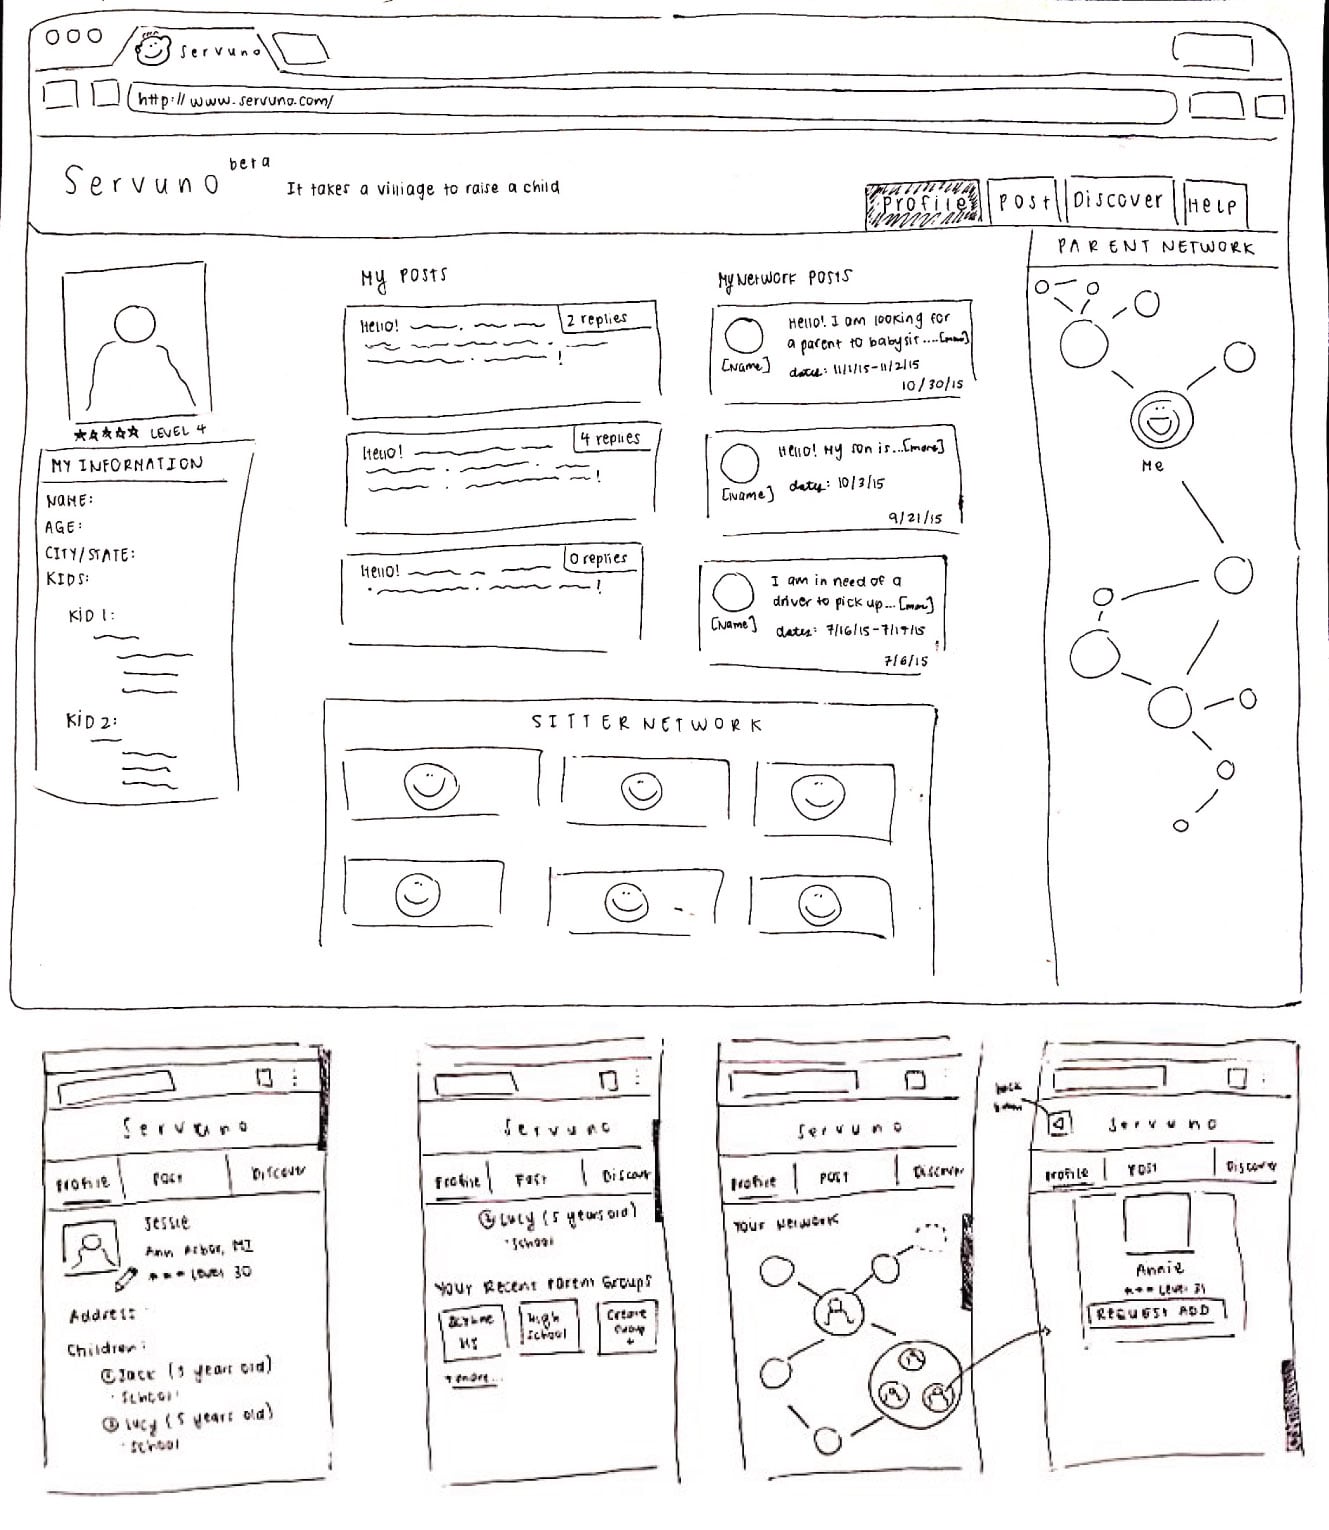 Servuno
http://www.servuno.com/
Servuno beta
It takes a village to raise a child
Profile
Post
Discover
Help
LEVEL 4
MY INFORMATION
NAME:
AGE:
CITY/STATE:
KIDS:
KID 1:
KID 2:
MY POSTS
Hello!
2 replies
Hello!
4 replies
Hello!
0 replies
My NETWORK POSTS
Hello! I am looking for
a parent to babysit....[more]
[Name]
dates: 11/1/15-11/2/15
10/30/15
Hello! My son is...[more]
[Name]
dates: 10/3/15
9/21/15
I am in need of a
driver to pick up...[more]
[Name]
dates: 7/16/15-7/19/15
7/6/15
SITTER NETWORK
PARENT NETWORK
Me
Servuno
Profile
Post
Discover
Jessie
Ann Arbor, MI
Level 30
Address:
Children:
① Jack (3 years old)
· School
② Lucy (5 years old)
· School
Servuno
Profile
Post
Discover
② Lucy (5 years old)
· School
Your Recent Parent Groups
High
School
Create
Group
+
+ more...
Servuno
Profile
Post
Discover
Your Network
back
button
Servuno
Profile
Post
Discover
Annie
Level 31
REQUEST ADD